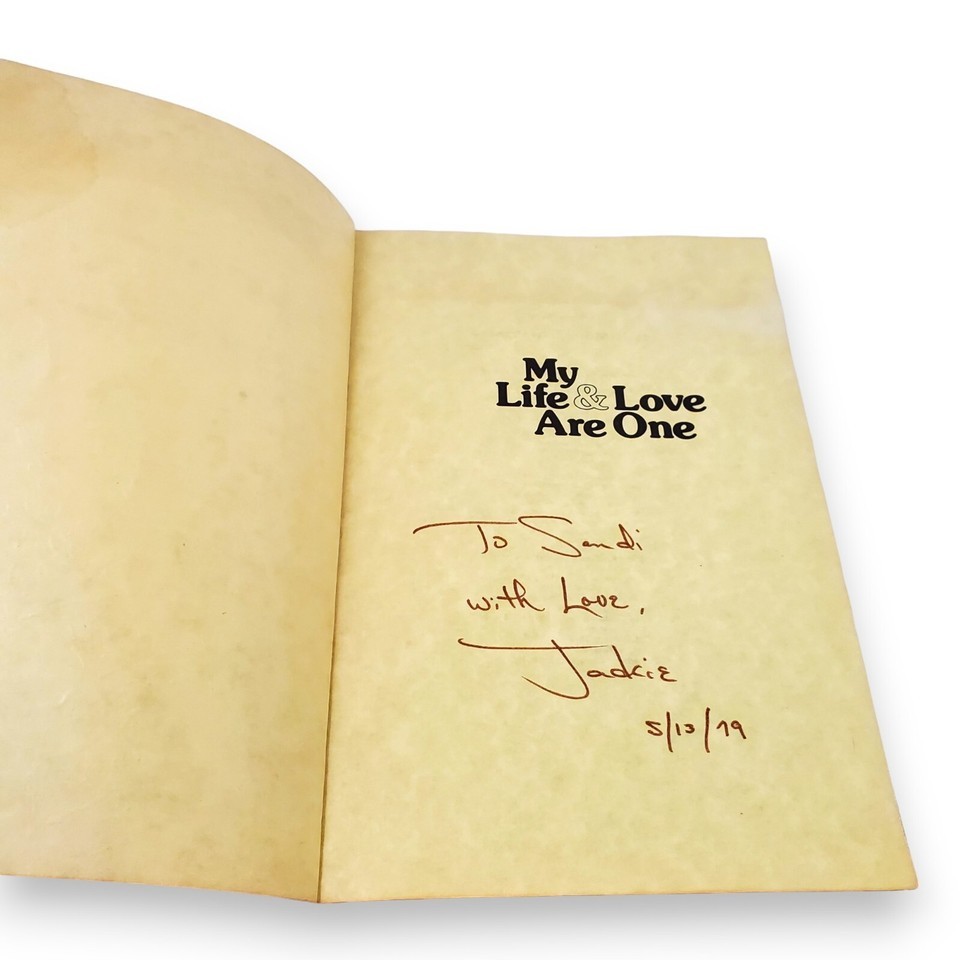 My
Life & Love
Are One
To Sandi
with Love,
Jackie
5/13/79